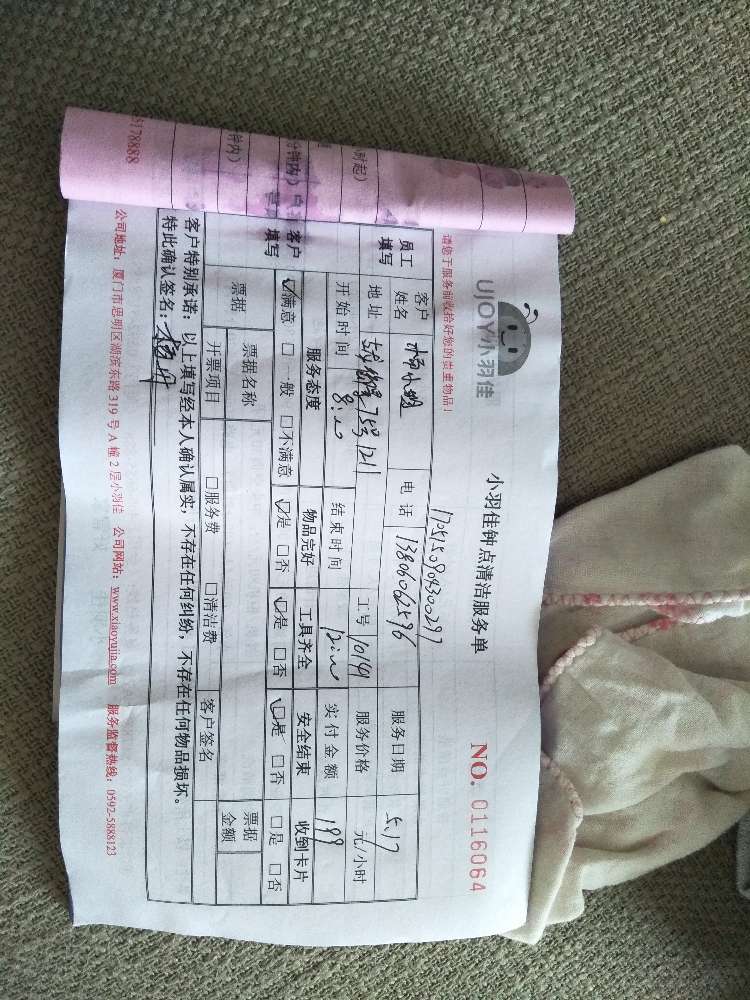 UJOY小羽佳
小羽佳钟点清洁服务单
NO. 0116064
请您于服务前收拾好您的贵重物品!
170515090430029?
员工填写
客户姓名
电话
13806062596
服务日期
5.17
地址
工号
10149
服务价格
元/小时
开始时间
结束时间
实付金额
199
客户填写
服务态度
物品完好
工具齐全
安全结束
收到卡片
☑满意 □一般 □不满意
☑是 □否
☑是 □否
☑是 □否
□是 □否
票据
票据名称
票据金额
开票项目
□服务费 □清洁费
客户签名
客户特别承诺:以上填写经本人确认属实,不存在任何纠纷,不存在任何物品损坏。
特此确认签名:
公司地址:厦门市思明区湖滨东路319号A幢2层小羽佳 公司网站:www.xiaoyujia.com 服务监督热线:0592-5888123
时起)
分钟内)
钟内)
5178888